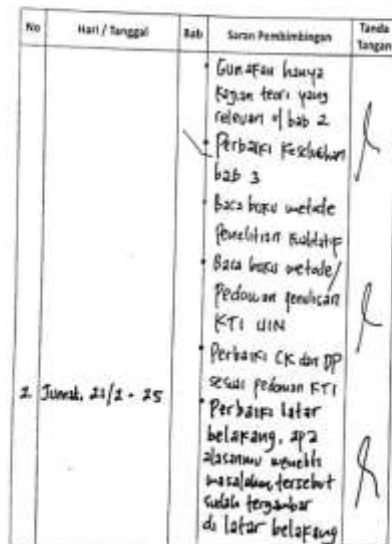 No Hari / Tanggal Bab Saran Pembimbingan Tanda Tangan
• Gunakan hanya
kajian teori yang
relevan d/ bab 2
• Perbaiki keseluruhan
bab 3
• Baca buku metode
penelitian kualitatif
• Baca buku metode/
Pedoman penulisan
KTI UIN
• Perbaiki CK dan DP
sesuai pedoman KTI
2 Jumat, 21/2 - 25 • Perbaiki latar
belakang, apa
alasanmu menulis
masalahan tersebut
sudah tergambar
di latar belakang